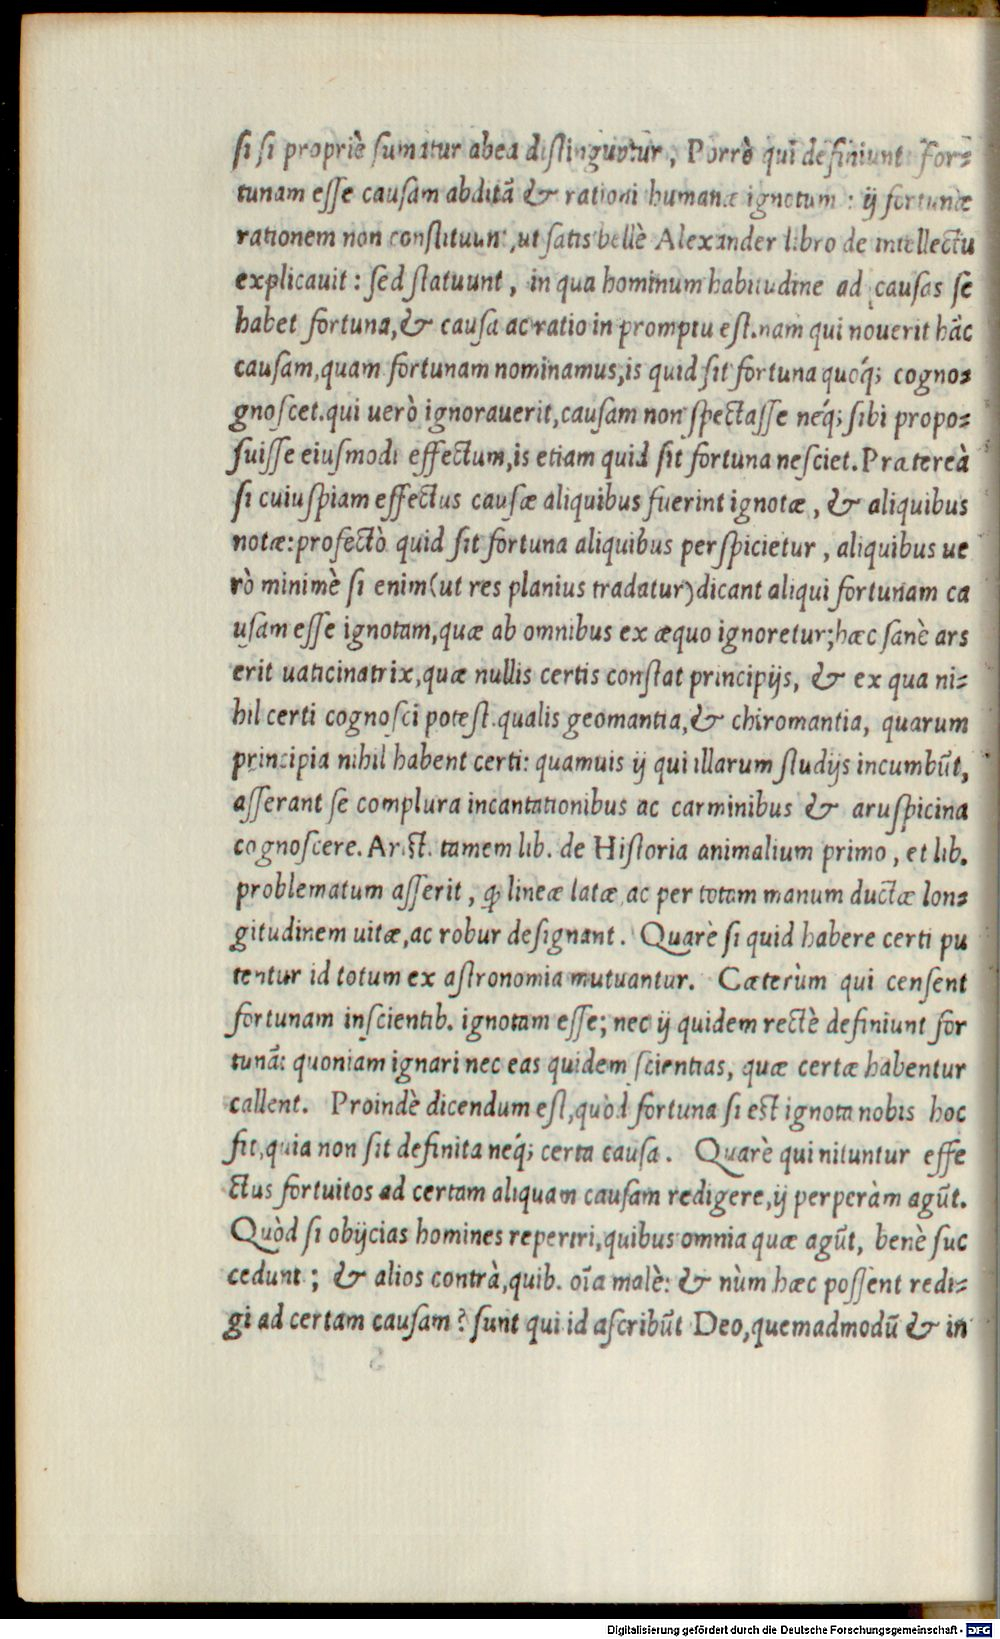 si si propriè sumatur ab ea distinguũtur, Porrò quī definiunt for⸗
tunam esse causam abditã & rationi humanæ ignotum: ij fortunæ
rationem non constituunt, ut satis bellè Alexander libro de intellectu
explicauit: sed statuunt, in qua hominum habitudine ad causas se
habet fortuna, & causa ac ratio in promptu est. nam qui nouerit hãc
causam, quam fortunam nominamus, is quid sit fortuna quoq́; cogno⸗
gnoscet. qui uerò ignorauerit, causam non spectasse neq́; sibi propo⸗
suisse eiusmodi effectum, is etiam quid sit fortuna nesciet. Prætereà
si cuiuspiam effectus causæ aliquibus fuerint ignotæ, & aliquibus
notæ: profectò quid sit fortuna aliquibus perspicietur, aliquibus ue
rò minimè si enim (ut res planius tradatur) dicant aliqui fortunam ca
usam esse ignotam, quæ ab omnibus ex æquo ignoretur; hæc sanè ars
erit uaticinatrix, quæ nullis certis constat principijs, & ex qua ni⸗
hil certi cognosci potest. qualis geomantia, & chiromantia, quarum
principia nihil habent certi: quamuis ij qui illarum studijs incumbũt,
asserant se complura incantationibus ac carminibus & aruspicina
cognoscere. Arist. tamem lib. de Historia animalium primo, et lib.
problematum asserit, ꝙ lineæ latæ ac per totam manum ductæ lon⸗
gitudinem uitæ, ac robur designant. Quarè si quid habere certi pu
tentur id totum ex astronomia mutuantur. Cæterùm qui censent
fortunam inscientib. ignotam esse; nec ij quidem rectè definiunt for
tunã: quoniam ignari nec eas quidem scientias, quæ certæ habentur
callent. Proindè dicendum est, quòd fortuna si est ignota nobis hoc
fit, quia non sit definita neq́; certa causa. Quarè qui nituntur effe
ctus fortuitos ad certam aliquam causam redigere, ij perperàm agũt.
Quòd si obijcias homines reperiri, quibus omnia quæ agũt, benè suc
cedunt; & alios contrà, quib. oĩa malè: & nùm hæc possent redi⸗
gi ad certam causam? sunt qui id ascribũt Deo, quemadmodũ & in
Digitalisierung gefördert durch die Deutsche Forschungsgemeinschaft - DFG